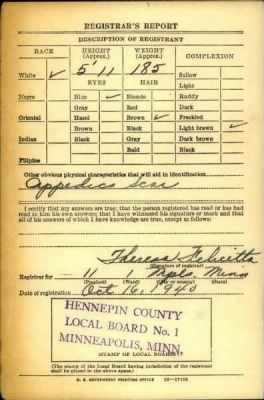 REGISTRAR'S REPORT
DESCRIPTION OF REGISTRANT
RACE HEIGHT (Approx.) WEIGHT (Approx.) COMPLEXION
White ✓ 5' 11 185 Sallow
EYES HAIR Light
Negro Blue ✓ Blonde Ruddy
Gray Red Dark
Oriental Hazel Brown ✓ Freckled
Brown Black Light brown ✓
Indian Black Gray Dark brown
Bald Black
Filipino
Other obvious physical characteristics that will aid in identification
Appedics scar
I certify that my answers are true; that the person registered has read or has had read to him his own answers; that I have witnessed his signature or mark and that all of his answers of which I have knowledge are true, except as follows:
Theresa Felicetta
(Signature of registrar)
Registrar for 11 1 Mpls. Minn
(Precinct) (Ward) (State)
Date of registration Oct 16, 1940
HENNEPIN COUNTY
LOCAL BOARD No. 1
MINNEAPOLIS, MINN.
(STAMP OF LOCAL BOARD)
(The stamp of the Local Board having jurisdiction of the registrant shall be placed in the above space.)
U. S. GOVERNMENT PRINTING OFFICE